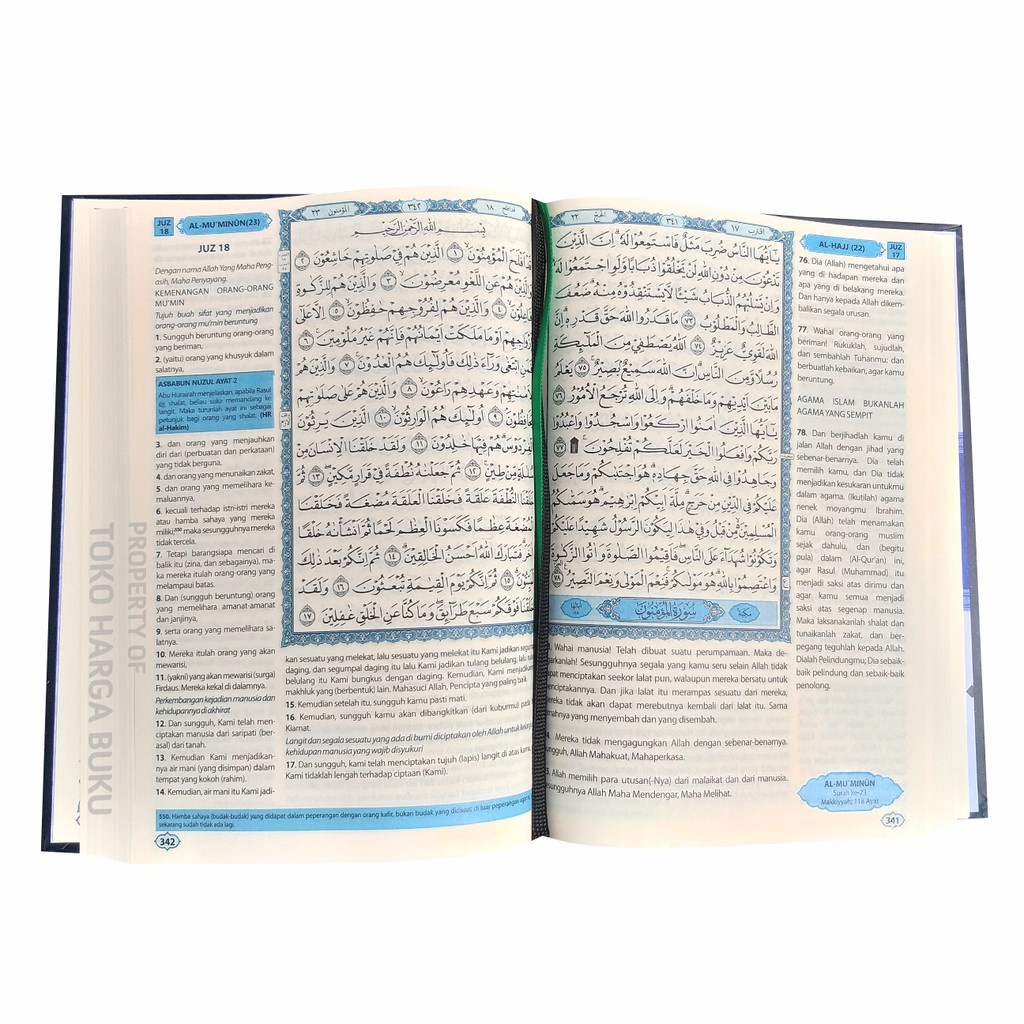 JUZ 18
AL-MU'MINŪN(23)
JUZ 18
Dengan nama Allah Yang Maha Peng-
asih, Maha Penyayang.
KEMENANGAN ORANG-ORANG
MU'MIN
Tujuh buah sifat yang menjadikan
orang-orang mu'min beruntung
1. Sungguh beruntung orang-orang
yang beriman,
2. (yaitu) orang yang khusyuk dalam
salatnya,
ASBABUN NUZUL AYAT 2
Abu Hurairah menjelaskan, apabila Rasul
ﷺ shalat, beliau suka memandang ke
langit. Maka turunlah ayat ini sebagai
petunjuk bagi orang yang shalat. (HR
al-Hakim)
3. dan orang yang menjauhkan
diri dari (perbuatan dan perkataan)
yang tidak berguna,
4. dan orang yang menunaikan zakat,
5. dan orang yang memelihara ke-
maluannya,
6. kecuali terhadap istri-istri mereka
atau hamba sahaya yang mereka
miliki;⁵⁵⁰ maka sesungguhnya mereka
tidak tercela.
7. Tetapi barangsiapa mencari di
balik itu (zina, dan sebagainya), ma-
ka mereka itulah orang-orang yang
melampaui batas.
8. Dan (sungguh beruntung) orang
yang memelihara amanat-amanat
dan janjinya,
9. serta orang yang memelihara sa-
latnya.
10. Mereka itulah orang yang akan
mewarisi,
11. (yakni) yang akan mewarisi (surga)
Firdaus. Mereka kekal di dalamnya.
Perkembangan kejadian manusia dan
kehidupannya di akhirat
12. Dan sungguh, Kami telah men-
ciptakan manusia dari saripati (ber-
asal) dari tanah.
13. Kemudian Kami menjadikan-
nya air mani (yang disimpan) dalam
tempat yang kokoh (rahim).
14. Kemudian, air mani itu Kami jadi-
المؤمنون ٢٣
٣٤٢
قد افلح ١٨
بِسْمِ اللّٰهِ الرَّحْمٰنِ الرَّحِيْمِ
اَفْلَحَ الْمُؤْمِنُوْنَ ۝١ الَّذِيْنَ هُمْ فِيْ صَلَاتِهِمْ خَاشِعُوْنَ ۝٢
هُمْ عَنِ اللَّغْوِ مُعْرِضُوْنَ ۝٣ وَالَّذِيْنَ هُمْ لِلزَّكٰوةِ
۝٤ وَالَّذِيْنَ هُمْ لِفُرُوْجِهِمْ حٰفِظُوْنَ ۝٥ اِلَّا عَلٰٓى
اَوْ مَا مَلَكَتْ اَيْمَانُهُمْ فَاِنَّهُمْ غَيْرُ مَلُوْمِيْنَ ۝٦
ابْتَغٰى وَرَاۤءَ ذٰلِكَ فَاُولٰۤىِٕكَ هُمُ الْعٰدُوْنَ ۝٧ وَالَّذِيْنَ هُمْ
وَعَهْدِهِمْ رَاعُوْنَ ۝٨ وَالَّذِيْنَ هُمْ عَلٰى صَلَوٰتِهِمْ
۝٩ اُولٰۤىِٕكَ هُمُ الْوَارِثُوْنَ ۝١٠ الَّذِيْنَ يَرِثُوْنَ
هُمْ فِيْهَا خٰلِدُوْنَ ۝١١ وَلَقَدْ خَلَقْنَا الْاِنْسَانَ مِنْ
مِّنْ طِيْنٍ ۝١٢ ثُمَّ جَعَلْنٰهُ نُطْفَةً فِيْ قَرَارٍ مَّكِيْنٍ ۝١٣ ثُمَّ
النُّطْفَةَ عَلَقَةً فَخَلَقْنَا الْعَلَقَةَ مُضْغَةً فَخَلَقْنَا
عِظٰمًا فَكَسَوْنَا الْعِظٰمَ لَحْمًا ثُمَّ اَنْشَأْنٰهُ خَلْقًا
فَتَبَارَكَ اللّٰهُ اَحْسَنُ الْخَالِقِيْنَ ۝١٤ ثُمَّ اِنَّكُمْ بَعْدَ ذٰلِكَ
۝١٥ ثُمَّ اِنَّكُمْ يَوْمَ الْقِيٰمَةِ تُبْعَثُوْنَ ۝١٦ وَلَقَدْ
فَوْقَكُمْ سَبْعَ طَرَاۤىِٕقَ وَمَا كُنَّا عَنِ الْخَلْقِ غٰفِلِيْنَ ۝١٧
kan sesuatu yang melekat, lalu sesuatu yang melekat itu Kami jadikan segum
daging, dan segumpal daging itu lalu Kami jadikan tulang belulang, lalu tula
belulang itu Kami bungkus dengan daging. Kemudian, Kami menjadikan
makhluk yang (berbentuk) lain. Mahasuci Allah, Pencipta yang paling baik.
15. Kemudian setelah itu, sungguh kamu pasti mati.
16. Kemudian, sungguh kamu akan dibangkitkan (dari kuburmu) pada
Kiamat.
Langit dan segala sesuatu yang ada di bumi diciptakan oleh Allah untuk
kehidupan manusia yang wajib disyukuri
17. Dan sungguh, kami telah menciptakan tujuh (lapis) langit di atas kamu,
Kami tidaklah lengah terhadap ciptaan (Kami).
550. Hamba sahaya (budak-budak) yang didapat dalam peperangan dengan orang kafir, bukan budak yang didapat di luar peperangan
sekarang sudah tidak ada lagi.
342
PROPERTY OF
TOKO HARGA BUKU
الحج ٢٢
٣٤١
اقترب ١٧
يٰٓاَيُّهَا النَّاسُ ضُرِبَ مَثَلٌ فَاسْتَمِعُوْا لَهٗ ۗاِنَّ الَّذِيْنَ
تَدْعُوْنَ مِنْ دُوْنِ اللّٰهِ لَنْ يَّخْلُقُوْا ذُبَابًا وَّلَوِ اجْتَمَعُوْا لَهٗ
وَاِنْ يَّسْلُبْهُمُ الذُّبَابُ شَيْـًٔا لَّا يَسْتَنْقِذُوْهُ مِنْهُۗ ضَعُفَ
الطَّالِبُ وَالْمَطْلُوْبُ ۝٧٣ مَا قَدَرُوا اللّٰهَ حَقَّ قَدْرِهٖۗ اِنَّ
اللّٰهَ لَقَوِيٌّ عَزِيْزٌ ۝٧٤ اَللّٰهُ يَصْطَفِيْ مِنَ الْمَلٰۤىِٕكَةِ
رُسُلًا وَّمِنَ النَّاسِۗ اِنَّ اللّٰهَ سَمِيْعٌۢ بَصِيْرٌ ۝٧٥ يَعْلَمُ
مَا بَيْنَ اَيْدِيْهِمْ وَمَا خَلْفَهُمْۗ وَاِلَى اللّٰهِ تُرْجَعُ الْاُمُوْرُ ۝٧٦
يٰٓاَيُّهَا الَّذِيْنَ اٰمَنُوا ارْكَعُوْا وَاسْجُدُوْا وَاعْبُدُوْا
رَبَّكُمْ وَافْعَلُوا الْخَيْرَ لَعَلَّكُمْ تُفْلِحُوْنَ ۝٧٧
وَجَاهِدُوْا فِى اللّٰهِ حَقَّ جِهَادِهٖۗ هُوَ اجْتَبٰىكُمْ وَمَا جَعَلَ
عَلَيْكُمْ فِى الدِّيْنِ مِنْ حَرَجٍۗ مِلَّةَ اَبِيْكُمْ اِبْرٰهِيْمَۗ هُوَ سَمّٰىكُمُ
الْمُسْلِمِيْنَ مِنْ قَبْلُ وَفِيْ هٰذَا لِيَكُوْنَ الرَّسُوْلُ شَهِيْدًا عَلَيْكُمْ
وَتَكُوْنُوْا شُهَدَاۤءَ عَلَى النَّاسِۖ فَاَقِيْمُوا الصَّلٰوةَ وَاٰتُوا الزَّكٰوةَ
وَاعْتَصِمُوْا بِاللّٰهِۗ هُوَ مَوْلٰىكُمْۚ فَنِعْمَ الْمَوْلٰى وَنِعْمَ النَّصِيْرُ ۝٧٨
سورة المؤمنون
مكية
Wahai manusia! Telah dibuat suatu perumpamaan. Maka de-
garkanlah! Sesungguhnya segala yang kamu seru selain Allah tidak
dapat menciptakan seekor lalat pun, walaupun mereka bersatu untuk
menciptakannya. Dan jika lalat itu merampas sesuatu dari mereka,
mereka tidak akan dapat merebutnya kembali dari lalat itu. Sama
lemahnya yang menyembah dan yang disembah.
Mereka tidak mengagungkan Allah dengan sebenar-benarnya.
ungguh, Allah Mahakuat, Mahaperkasa.
Allah memilih para utusan(-Nya) dari malaikat dan dari manusia.
esungguhnya Allah Maha Mendengar, Maha Melihat.
AL-HAJJ (22)
JUZ 17
76. Dia (Allah) mengetahui apa
yang di hadapan mereka dan
apa yang di belakang mereka.
Dan hanya kepada Allah dikem-
balikan segala urusan.
77. Wahai orang-orang yang
beriman! Rukuklah, sujudlah,
dan sembahlah Tuhanmu; dan
berbuatlah kebaikan, agar kamu
beruntung.
AGAMA ISLAM BUKANLAH
AGAMA YANG SEMPIT
78. Dan berjihadlah kamu di
jalan Allah dengan jihad yang
sebenar-benarnya. Dia telah
memilih kamu, dan Dia tidak
menjadikan kesukaran untukmu
dalam agama. (Ikutilah) agama
nenek moyangmu Ibrahim.
Dia (Allah) telah menamakan
kamu orang-orang muslim
sejak dahulu, dan (begitu
pula) dalam (Al-Qur'an) ini,
agar Rasul (Muhammad) itu
menjadi saksi atas dirimu dan
agar kamu semua menjadi
saksi atas segenap manusia.
Maka laksanakanlah shalat dan
tunaikanlah zakat, dan ber-
pegang teguhlah kepada Allah.
Dialah Pelindungmu; Dia sebaik-
baik pelindung dan sebaik-baik
penolong.
AL-MU'MINŪN
Surah ke-23
Makkiyyah; 118 Ayat
341